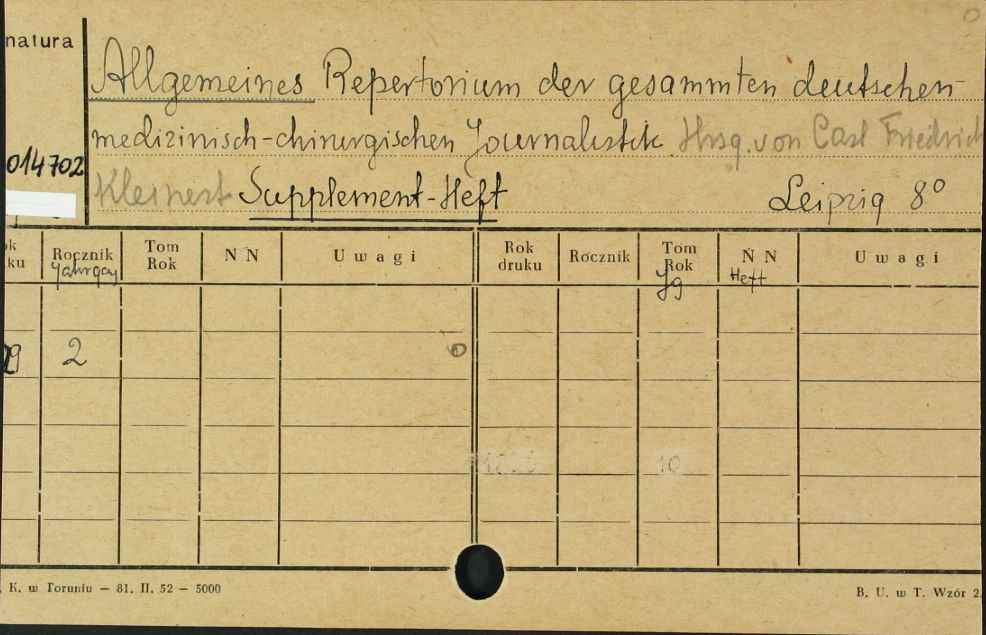 natura
Allgemeines Repertorium der gesammten deutschen
medizinisch-chirurgischen Journalistik Hrsg. von Carl Friedrich
014702
Kleinert Supplement-Heft Leipzig 8°
ok Rocznik Tom N N Uwagi Rok Rocznik Tom N N Uwagi
ku Jahrgang Rok druku Rok Heft
Jg
29 2
10
K. w Toruniu — 81. II. 52 — 5000 B. U. w T. Wzór 2